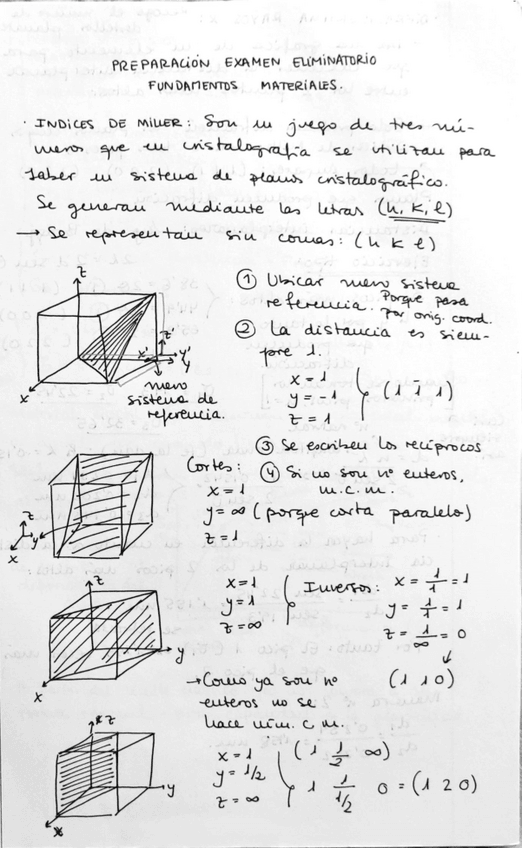 PREPARACIÓN EXAMEN ELIMINATORIO
FUNDAMENTOS MATERIALES.
· INDICES DE MILLER: Son un juego de tres nú-
meros que en cristalografía se utilizan para
saber un sistema de planos cristalográfico.
Se generan mediante las letras (h, k, l)
→ Se representan sin comas: (h k l)
① Ubicar nuevo sistema
referencia. Porque pasa
por orig. coord.
② La distancia es siem-
pre 1.
z
x
z'
x' y'
y
nuevo
sistema de
referencia.
x = 1
y = -1
z = 1
(1 1̄ 1)
③ Se escriben los recíprocos
④ Si no son nº enteros,
m.c.m.
Cortes:
x = 1
y = ∞ (porque corta paralelo)
z = 1
z
y
x
z
y
x
x = 1
y = 1
z = ∞
Inversos: x = 1/1 = 1
y = 1/1 = 1
z = 1/∞ = 0
(1 1 0)
→ Como ya son nº
enteros no se
hace m. c. m.
z
y
x
x = 1
y = 1/2
z = ∞
(1 1/2 ∞)
1 1/1/2 0 = (1 2 0)